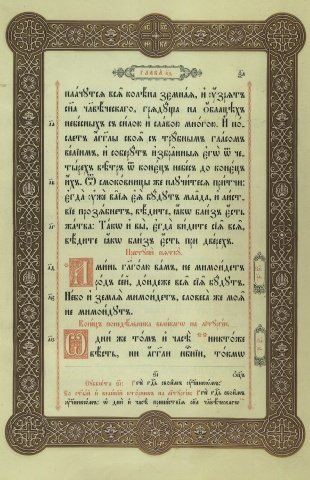 ГЛАВА к҃д
пла́чутся всѧ̑ колѣ́на земна̑ѧ, и҆ ᲂу҆́зрятъ
сн҃а чл҃вѣ́ческаго, грѧдꙋ́ща на ѡ҆́блацѣхъ
небе́сныхъ съ си́лою и҆ сла́вою мно́гою. И҆ по́-
слетъ а҆́гг҃лы своѧ̑ съ трꙋ́бнымъ гла́сомъ
ве́лїимъ, и҆ соберꙋ́тъ и҆збра̑нныѧ є҆гѡ̀ ѿ че-
ты́рехъ вѣ̑тръ ѿ конє́цъ небе́съ до конє́цъ
и҆́хъ. Ѿ смоко́вницы же наꙋчи́тесѧ при́тчи:
є҆гда̀ ᲂу҆жѐ ва̑їѧ є҆ѧ̀ бꙋ́дꙋтъ мла̑да, и҆ ли́ст-
вїе прозѧ́бнетъ, вѣ́дите, ꙗ҆́кѡ бли́з̾ є҆́сть
жа́тва: Та́кѡ и҆ вы̀, є҆гда̀ ви́дите сїѧ̑ всѧ̑,
вѣ́дите, ꙗ҆́кѡ бли́з̾ є҆́сть при две́рехъ.
А҆ми́нь гл҃ю ва́мъ, не мимои́детъ
ро́дъ се́й, до́ндеже всѧ̑ сїѧ̑ бꙋ́дꙋтъ.
Не́бо и҆ землѧ̀ мимои́детъ, словеса́ же моѧ̑
не мимои́дꙋтъ.
Коне́цъ понедѣ́льника вели́кагѡ на лїтꙋргі́и.
Ѡ҆ днѝ же то́мъ и҆ часѣ̀ никто́же
вѣ́сть, ни а҆́гг҃ли нбⷭ҇нїи, то́кмѡ
Речѐ гдⷭ҇ь свои̑мъ ᲂу҆ч҃нкѡ́мъ:
Речѐ гдⷭ҇ь свои̑мъ
ᲂу҆ч҃нкѡ́мъ: ѡ҆ днѝ и҆ часѣ̀ прише́ствїѧ сн҃а чл҃вѣ́ческагѡ